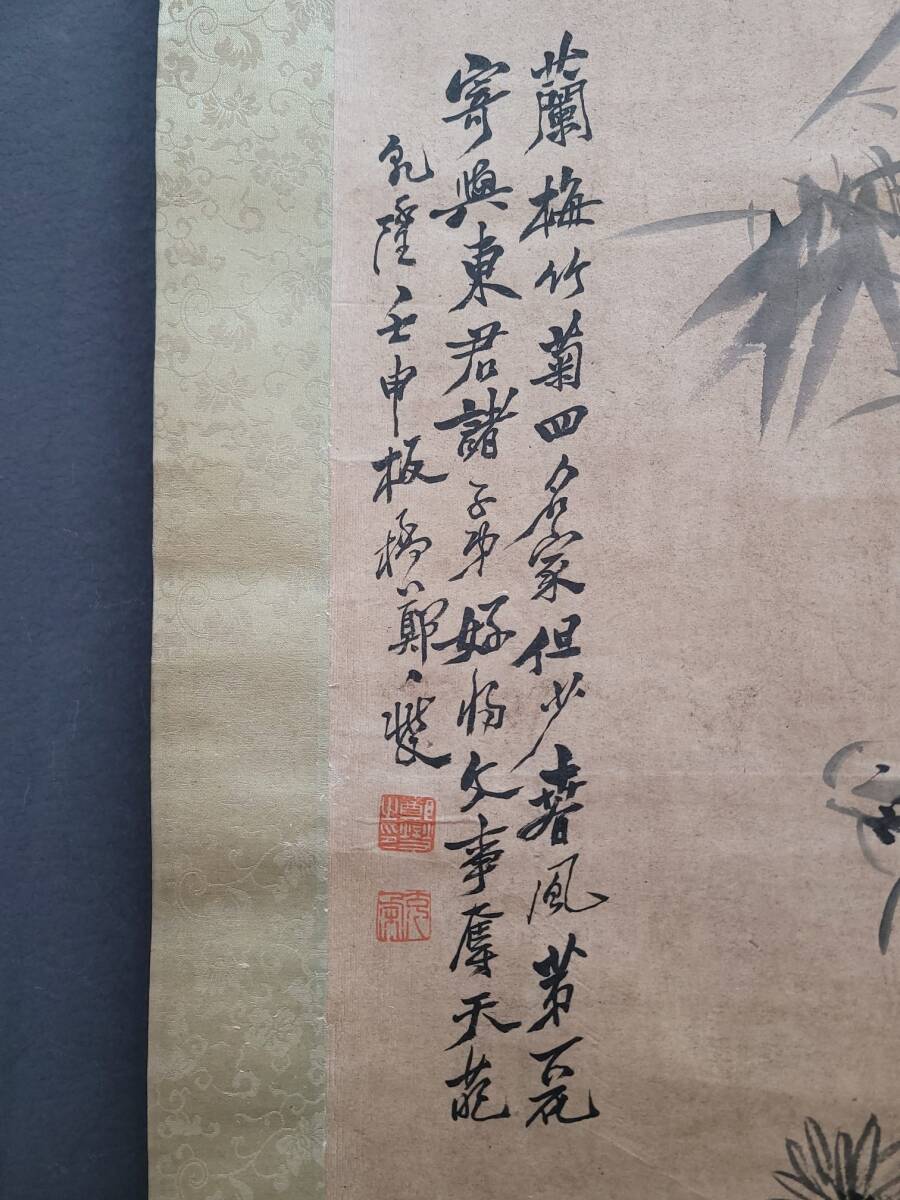 蘭梅竹菊四名家但少春風第一花
寄與東君諸子弟好將文事奪天葩
乾隆壬申板橋鄭燮
鄭燮之印
克柔